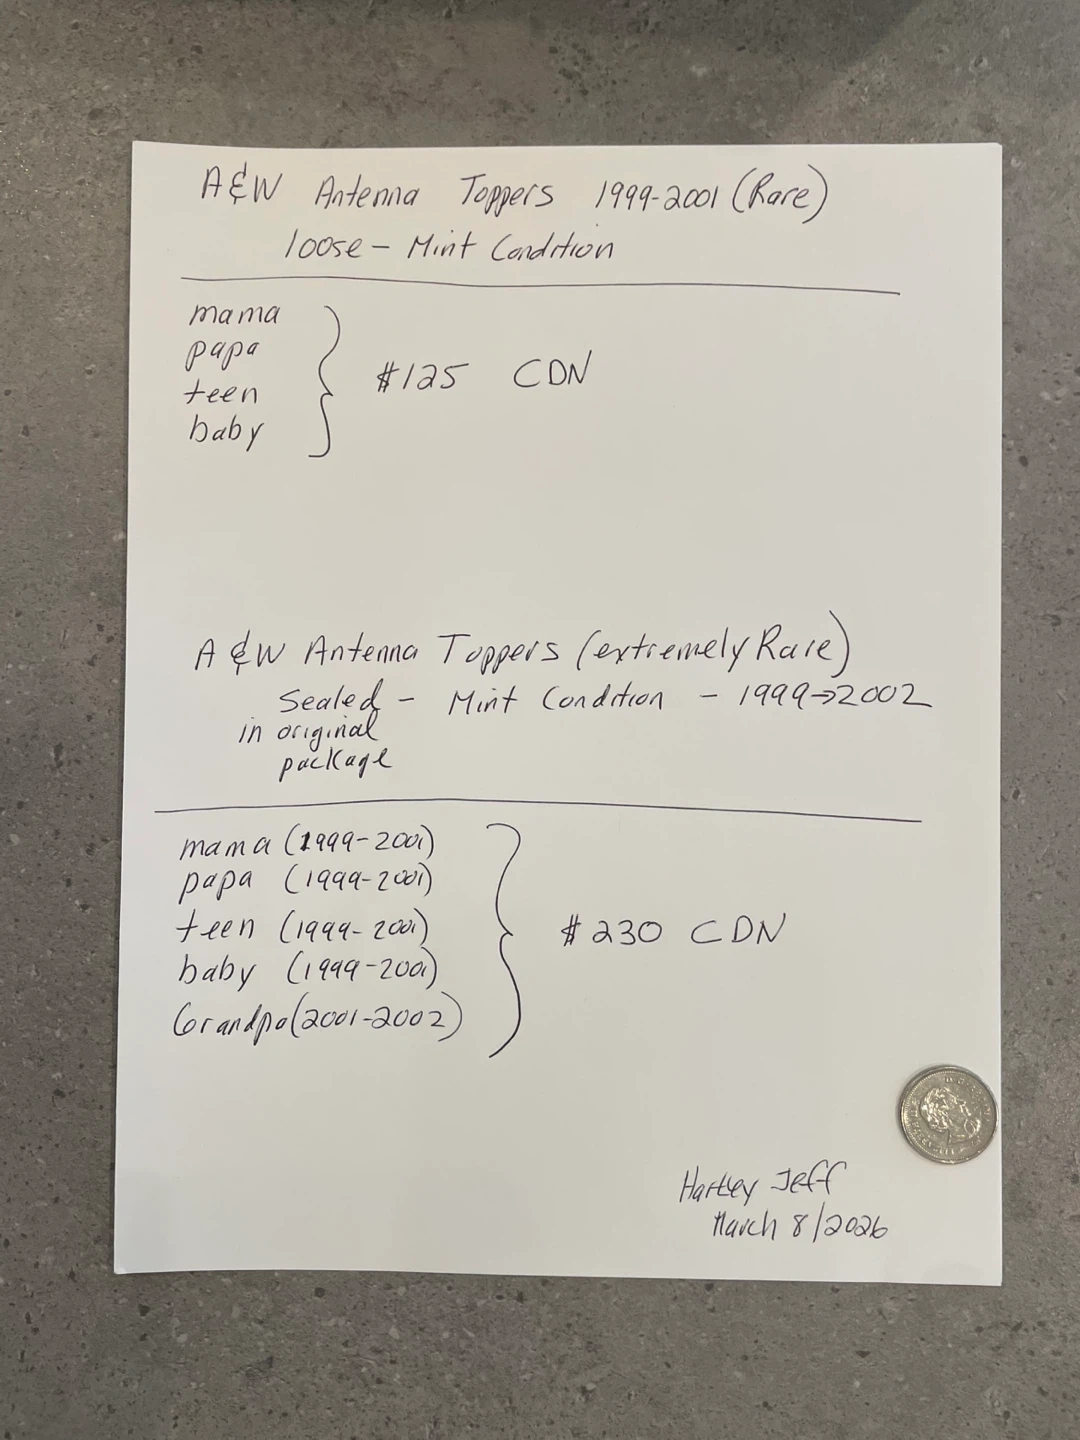 A&W Antenna Toppers 1999-2001 (Rare)
loose - Mint Condition
mama
papa
teen
baby
$125 CDN
A&W Antenna Toppers (extremely Rare)
Sealed - Mint Condition - 1999→2002
in original
package
mama (1999-2001)
papa (1999-2001)
teen (1999-2001)
baby (1999-2001)
Grandpa (2001-2002)
$230 CDN
Hartley Jeff
March 8/2026